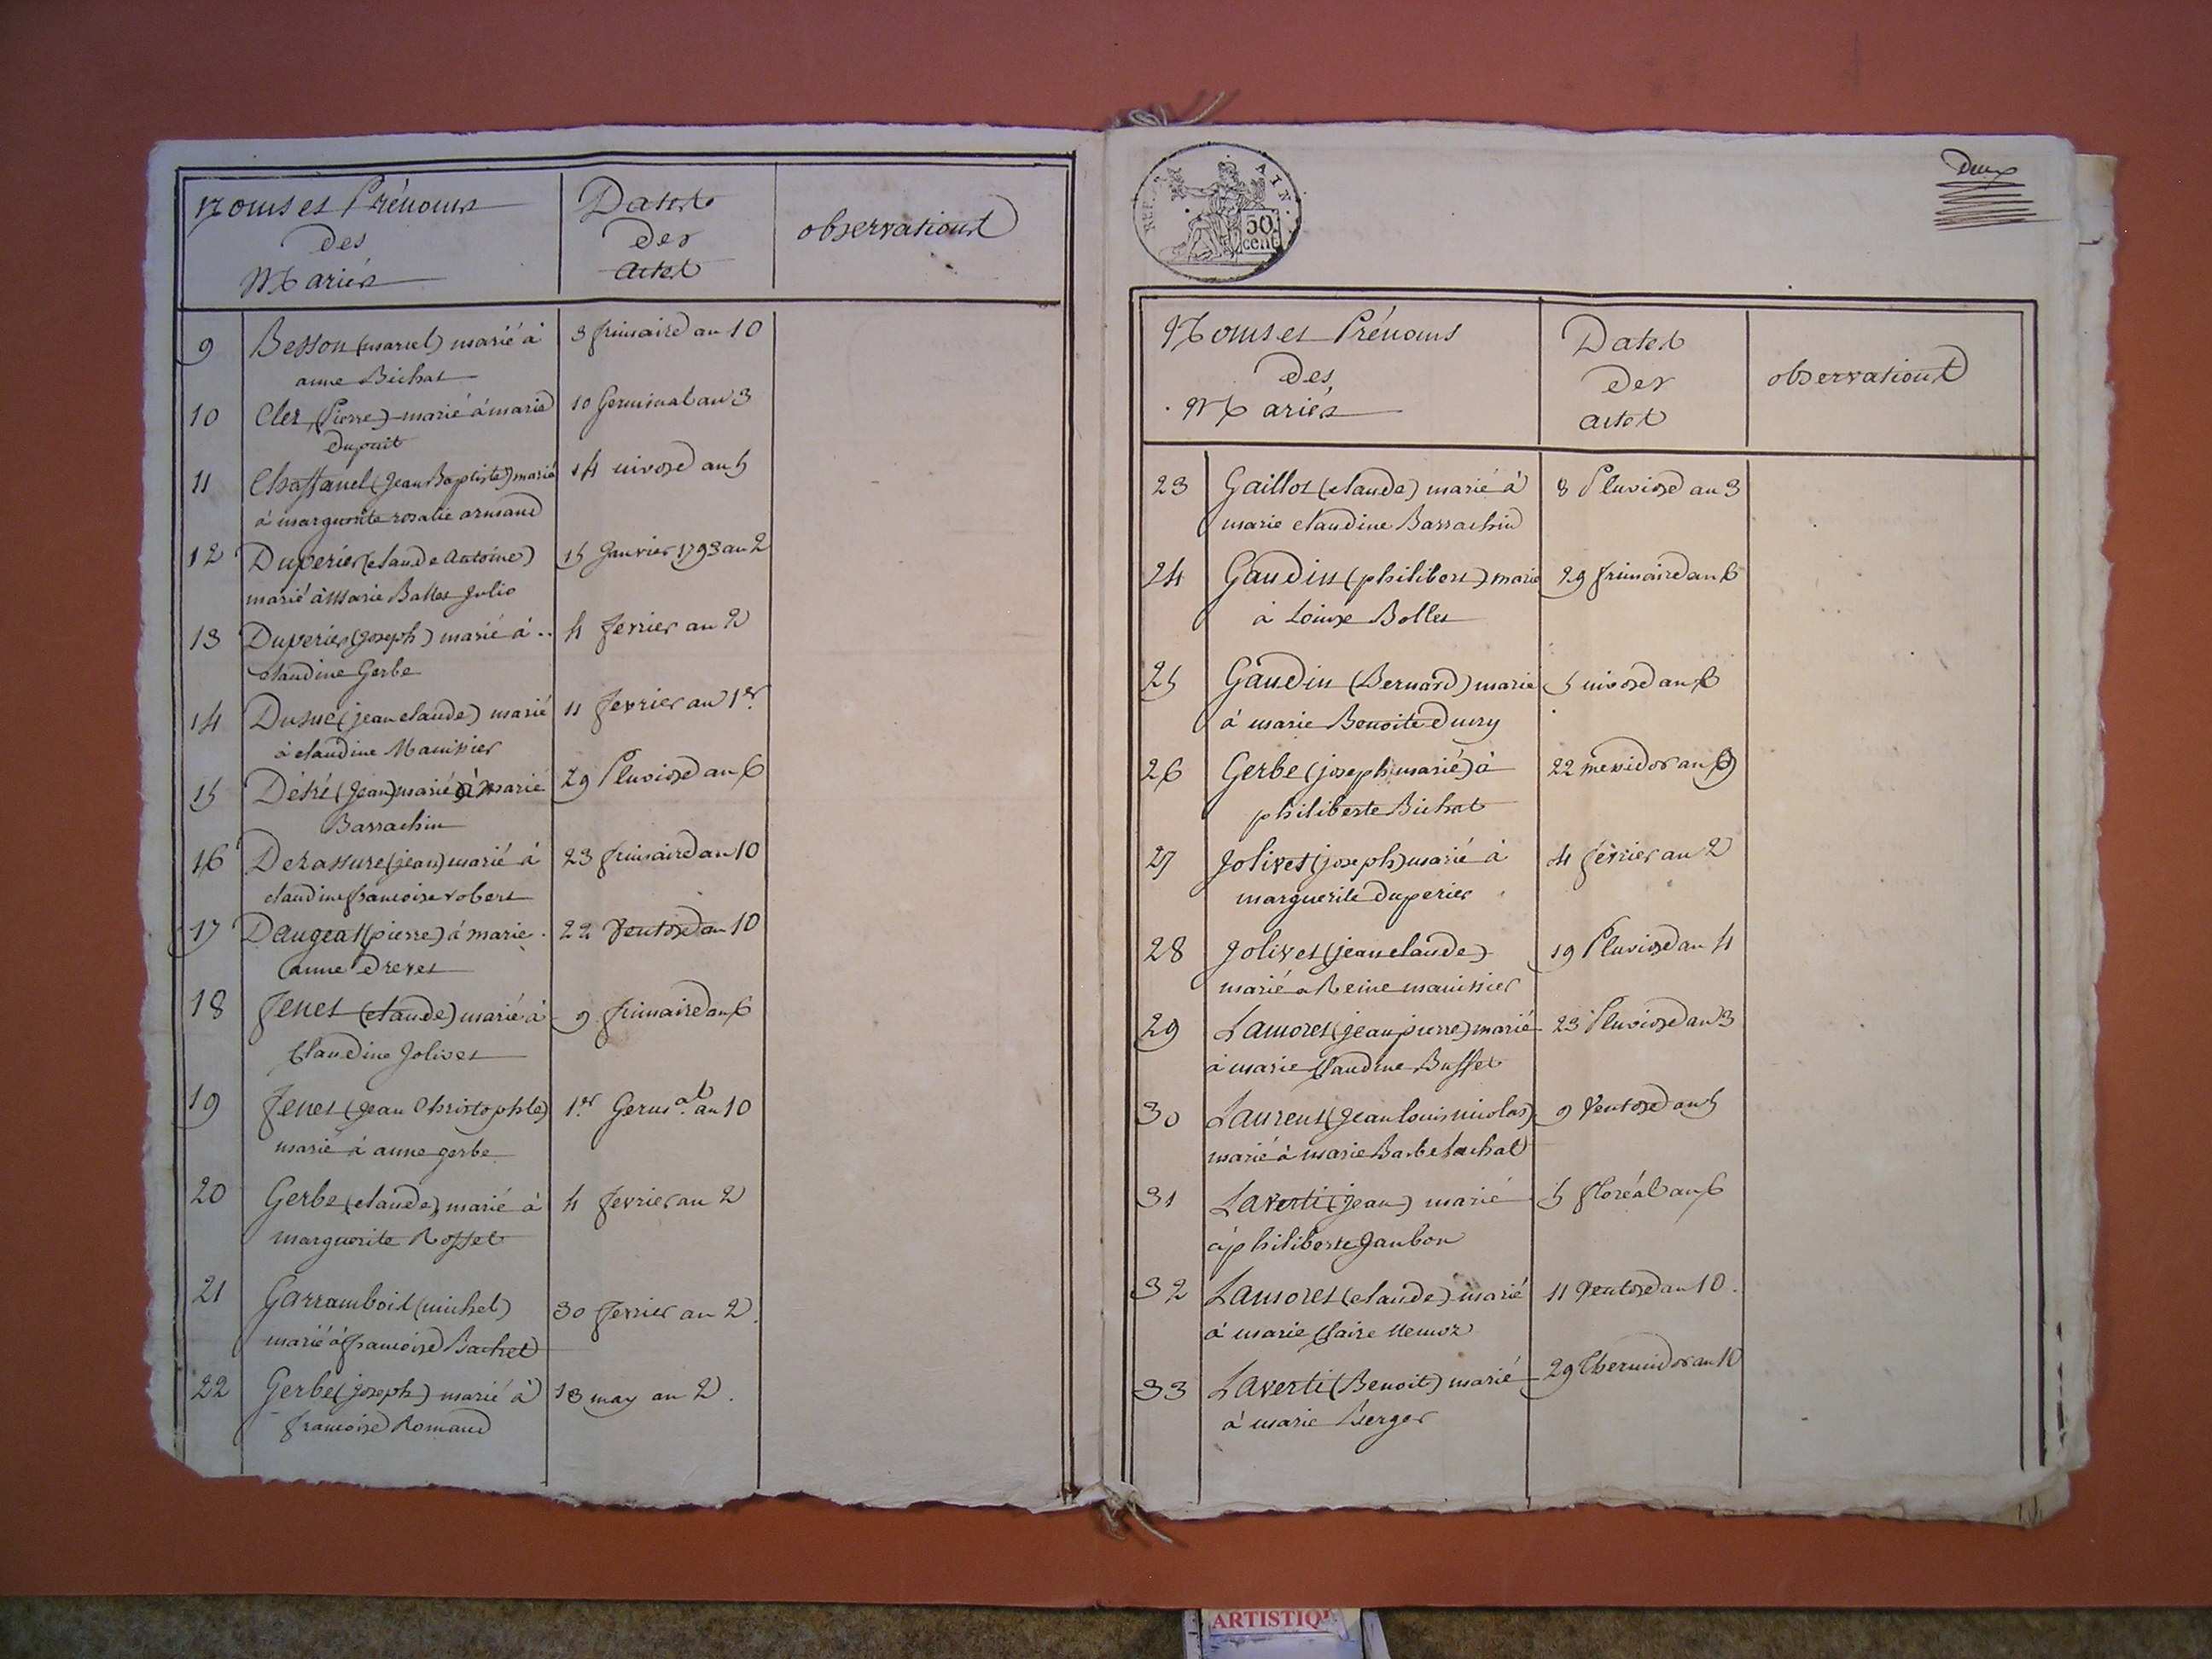 Noms et Prénoms
des
Mariés
Dates
des
actes
observations
9 Besson (marcel) marié à 3 frimaire an 10
anne Bichat
10 Cler (Pierre) marié à marie 10 Germinal an 3
Dupuit
11 Chaffanel (Jean Baptiste) marié 14 nivose an 5
à marguerite rosalie armand
12 Duperier (claude Antoine) 15 Janvier 1793 an 2
marié à Marie Balles Julie
13 Duperier (Joseph) marié à .. 4 fevrier an 2
claudine Gerbe
14 Dusuc (jean claude) marié 11 fevrier an 1er
à claudine Manissier
15 Détré (Jean) marié à marie 29 Pluviose an 6
Barrachin
16 Derassure (jean) marié à 23 frimaire an 10
claudine francoise robert
17 Daugeat (pierre) à marie 22 Ventose an 10
anne Drevet
18 Jenet (claude) marié à 9 frimaire an 6
Claudine Jolivet
19 Jenet (Jean Christophle) 1er Germal an 10
marié à anne gerbe
20 Gerbe (claude) marié à 4 fevrier an 2
marguerite Rosset
21 Garramboit (michel) 30 fevrier an 2.
marié à francoise Bachet
22 Gerbe (joseph) marié à 18 may an 2.
francoise Romand
50
cent
AIN.
Deux
Noms et Prénoms
des
Mariés
Dates
des
actes
observations
23 Gaillot (claude) marié à 8 Pluviose an 3
marie claudine Barrachin
24 Gaudin (philibert) marié 29 frimaire an 6
à Louise Bolles
25 Gaudin (Bernard) marié 5 nivose an 6
à marie Benoite Dury
26 Gerbe (joseph marié) à 22 messidor an 9
philiberte Bichat
27 Jolivet (joseph) marié à 4 février an 2
marguerite Duperier
28 Jolivet (jean claude) 19 Pluviose an 4
marié a Reine manissier
29 Lamoret (jean pierre) marié 23 Pluviose an 3
à marie Claudine Buffet
30 Laurent (Jean louis nicolas) 9 Ventose an 5
marié à marie Barbe Lachat
31 Laverti (jean) marié 5 floréal an 6
à philiberte Janbon
32 Lamoret (claude) marié 11 Ventose an 10.
à marie Claire Nemoz
33 Laverti (Benoit) marié 29 thermidor an 10
à marie Berger
ARTISTIQ